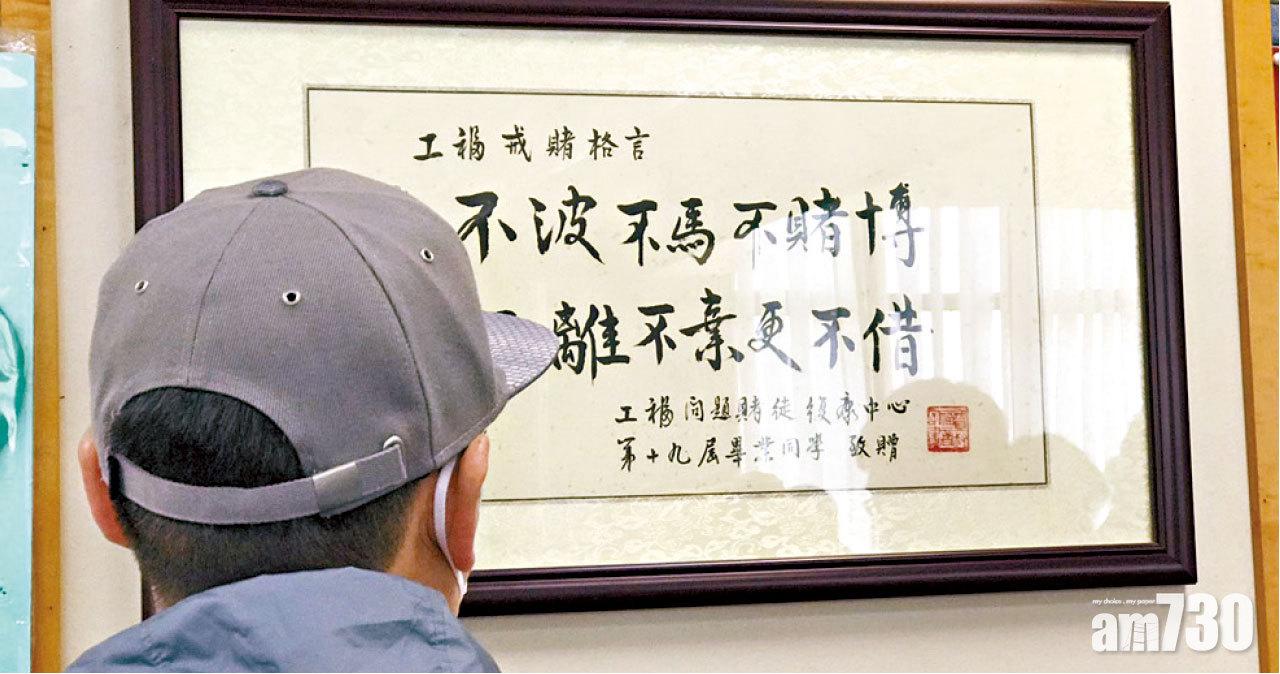 工福戒賭格言
不波不馬不賭博
離不棄更不借
工福问題賭徒復康中心
第十九屆畢業同學 敬贈
my choice . my paper
am730